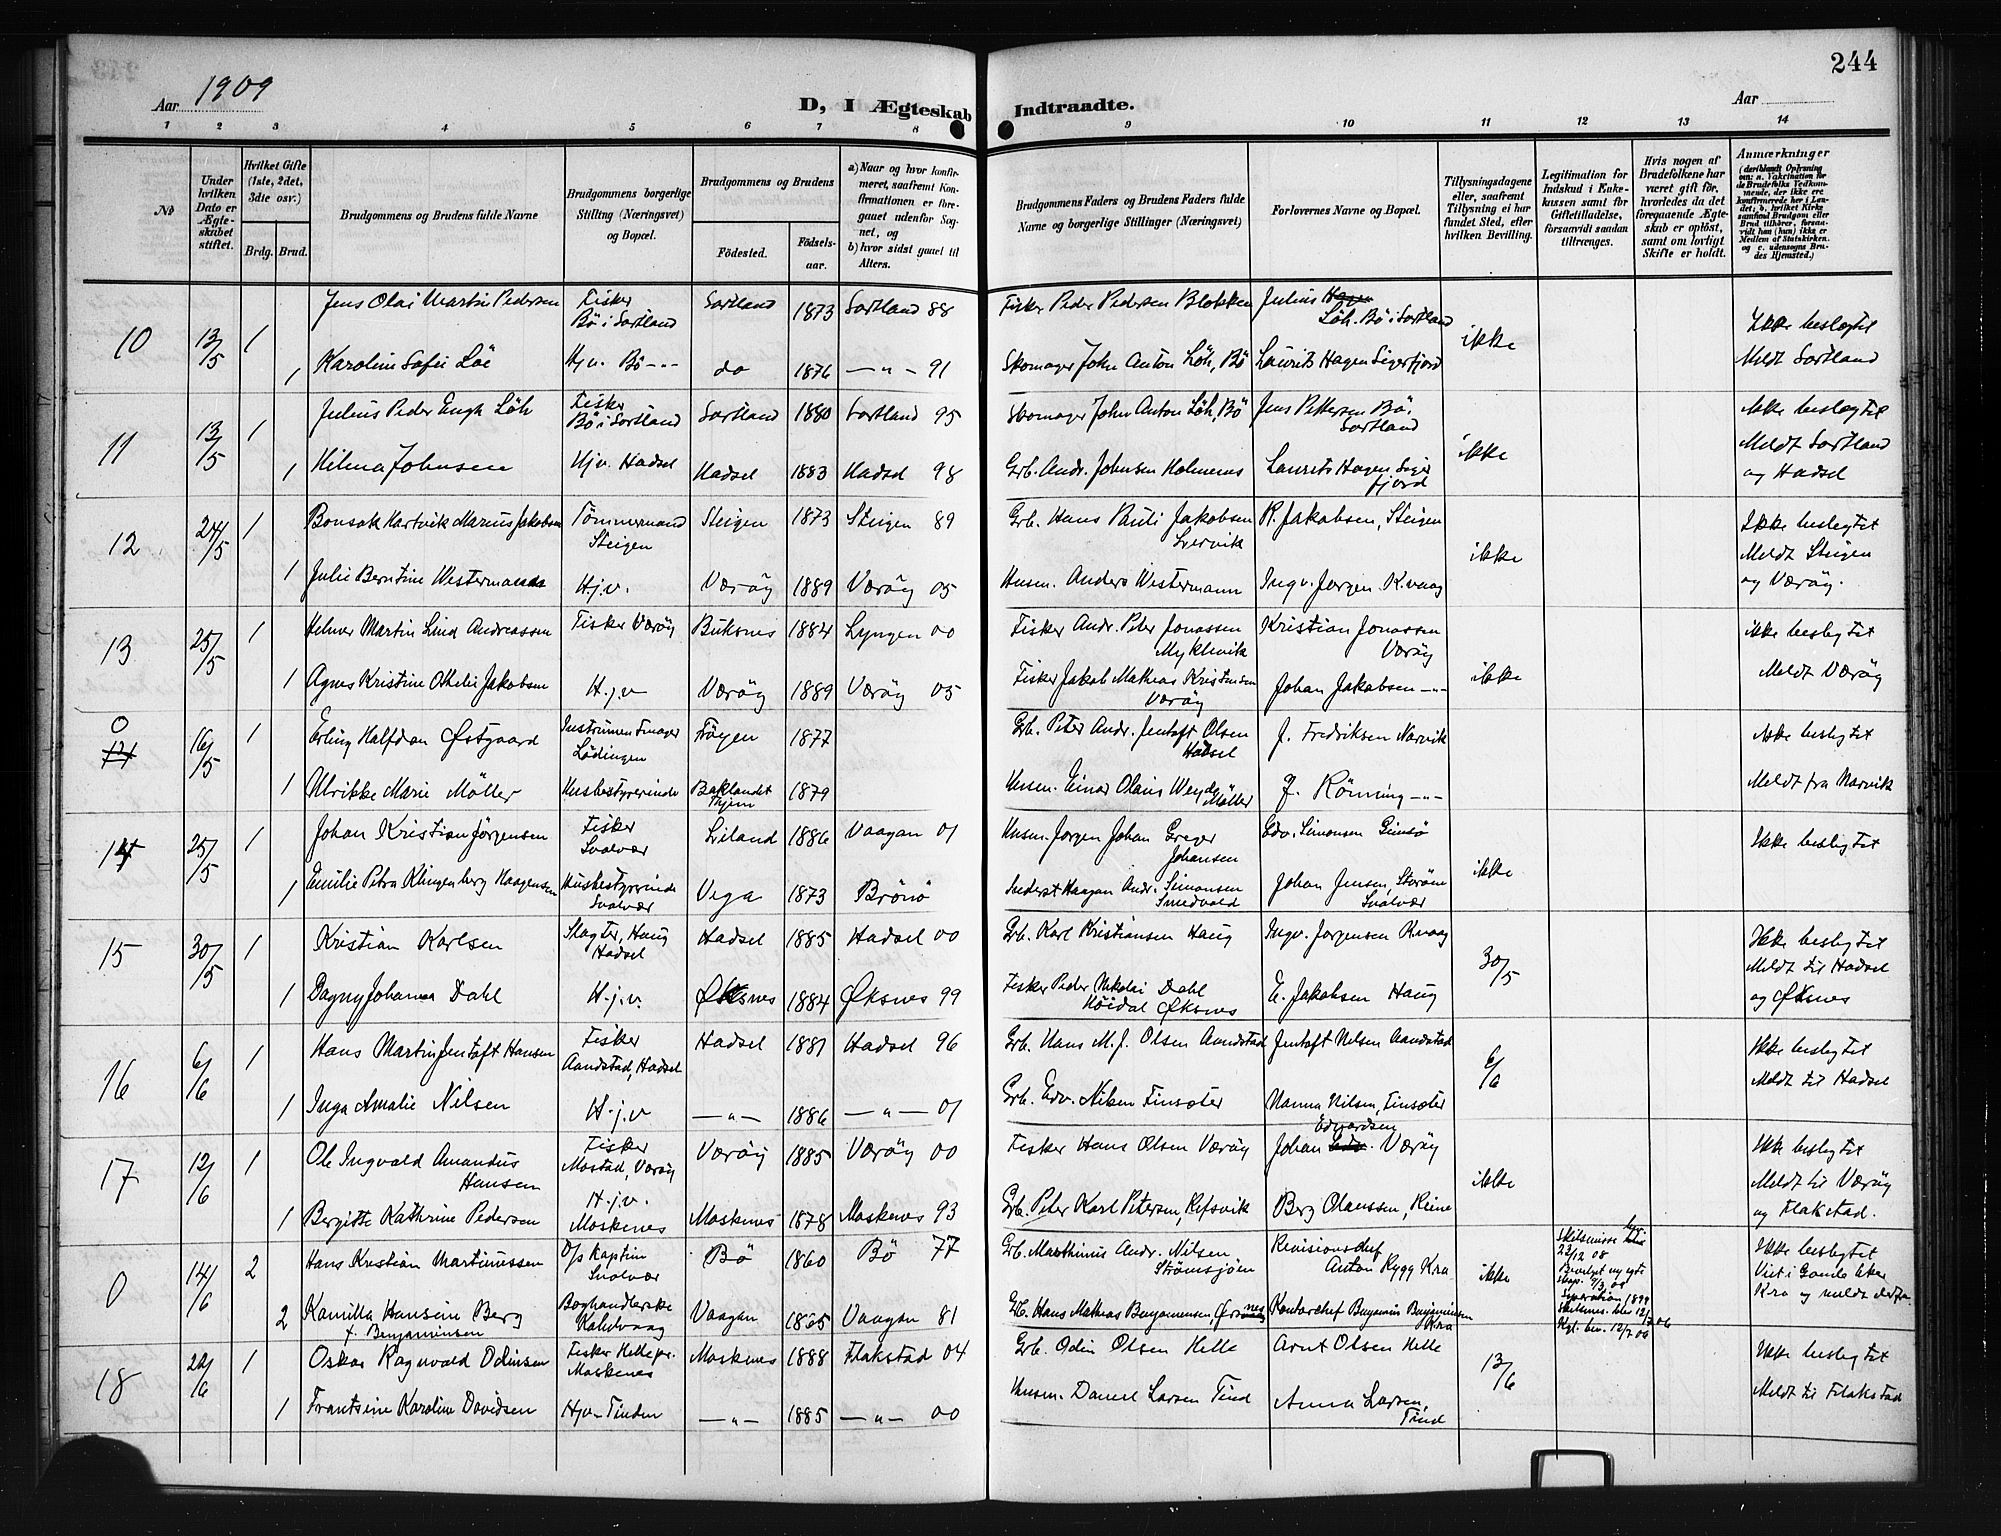 244
Aar 1909
D, I Ægteskab Indtraadte.
Aar
1 2 3 4 5 6 7 8 9 10 11 12 13 14
No
Under hvilken Dato er Ægteskabet stiftet.
Hvilket Gifte (1ste, 2det, 3die osv.)
Brdg. Brud.
Brudgommens og Brudens fulde Navne
Brudgommens borgerlige Stilling (Næringsvei) og Bopæl.
Brudgommens og Brudens
Födested. Födsels-aar.
a) Naar og hvor konfirmeret, saafremt Konfirmationen er foregaaet udenfor Sognet, og
b) hvor sidst gaaet til Alters.
Brudgommens Faders og Brudens Faders fulde Navne og borgerlige Stillinger (Næringsvei)
Forlovernes Navne og Bopæl.
Tillysningsdagene eller, saafremt Tillysning ei har fundet Sted, efter hvilken Bevilling.
Legitimation for Indskud i Enkekassen samt for Giftetilladelse, forsaavidt saadan tiltrænges.
Hvis nogen af Brudefolkene har været gift för, hvorledes da det foregaaende Ægteskab er oplöst, samt om lovligt Skifte er holdt.
Anmærkninger
10 13/5 1 Jens Olai Martin Pedersen Fisker Bö i Sortland Sortland 1873 Sortland 88 Fisker Peder Pedersen Blokken Julius Hagen Löh. Bö i Sortland ikke Ikke beslegtet
1 Karoline Sofie Löe Hjv. Bö -"- do 1876 -"- 91 Skomager John Anton Löh, Bö Laurits Hagen Sigerfjord Meldt Sortland
11 13/5 1 Julius Peder Engh Löh Fisker Bö i Sortland Sortland 1880 Sortland 95 Skomager John Anton Löh, Bö Jens Pettersen Bö, Sortland ikke Ikke beslegtet
1 Hilma Johnsen Hjv. Hadsel Hadsel 1883 Hadsel 98 Grb. Andr. Johnsen Holmenes Laurits Hagen Sigerfjord Meldt Sortland og Hadsel
12 24/5 1 Bonsak Hartvik Marius Jakobsen Tömmermand Steigen Steigen 1873 Steigen 89 Grb. Hans Pauli Jakobsen R. Jakobsen, Steigen ikke Ikke beslegtet
1 Julie Berntine Westermann H.j.v. Væröy 1889 Væröy 05 Husm. Anders Westermann Ingv. Jörgen K.vaag Meldt Steigen og Væröy.
13 25/5 1 Helmer Martin Lind Andreassen Fisker Væröy Buksnes 1884 Lyngen 00 Fisker Andr. Peter Jonassen Myklevik Kristian Jonassen Væröy ikke ikke beslegtet
1 Agnes Kristine Othelie Jakobsen H.j.v Væröy 1889 Væröy 05 Fisker Jakob Mathias Kristensen Væröy Johan Jakobsen -"- Meldt Væröy
0 14 16/5 1 Erling Halfdan Østgaard Instrumentmager Lödingen Fröyen 1877 Grb. Peter Andr. Jentoft Olsen Hadsel J. Fredriksen Narvik Ikke beslegtet
1 Ulrikke Marie Möller Husbestyrerinde Baklandet Thjem 1879 Husm. Einar Olaus Weyde Möller J. Rönning -"- Meldt fra Narvik
14 25/5 1 Johan Kristian Jörgensen Fisker Svolvær Liland 1886 Vaagan 01 Husm. Jörgen Johan Greger Johansen Edv. Simonsen Gimsö ikke Ikke beslegtet
1 Emilie Petra Klingenberg Haagensen Husbestyrerinde Svolvær Vega 1873 Brönö Inderst Haagan Andr. Simonsen Johan Jensen, Storöen Svolvær
15 30/5 1 Kristian Karlsen Slagter, Haug Hadsel Hadsel 1885 Hadsel 00 Grb. Karl Kristiansen Haug Ingv. Jörgensen K.vaag 30/5 Ikke beslegtet
1 Dagny Johanna Dahl H.j.v. Øksnes 1884 Øksnes 99 Fisker Peder Nikolai Dahl Höidal Øksnes E. Jakobsen Haug Meldt til Hadsel og Øksnes
16 6/6 1 Hans Martin Jentoft Hansen Fisker Aandstad, Hadsel Hadsel 1881 Hadsel 96 Grb. Hans M. J. Olsen Aandstad Jentoft Nilsen Aandstad 6/6 Ikke beslegtet
1 Inga Amalie Nilsen H.j.v -"- 1886 -"- 01 Grb. Edv. Nilsen Finsæter Nanna Nilsen, Finsæter Meldt til Hadsel
17 12/6 1 Ole Ingvald Amandus Hansen Fisker Mostad, Væröy Væröy 1885 Væröy 00 Fisker Hans Olsen Væröy Johan Edvardsen Væröy ikke Ikke beslegtet
1 Bergitte Kathrine Pedersen H.j.v. Moskenes Moskenes 1878 Moskenes 93 Grb. Peter Karl Petersen, Refsvik Berg Olaussen, Reine Meldt til Væröy og Flakstad.
0 14/6 2 Hans Kristian Martinussen D/s Kaptein Svolvær Bö 1860 Bö 77 Grb. Marthinus Andr. Nilsen Strömsjöen Revisionschef Anton Rygg Kra ikke Skilsmisse 22/12 08 Ikke beslegtet
2 Kamilla Hansine Berg f. Benjaminsen Boghandlerske Kabelvaag Vaagan 1865 Vaagan 81 Grb. Hans Mathias Benjaminsen, Örsnes Kontorchef Benjamin Benjaminsen Kra Seperation 1899 Skilsmis. blev 12/7 06 Kgl. bev. 12/7 06 Viet i Gamle Aker Kra og meldt derfra.
18 22/6 1 Oskar Ragnvald Odinsen Fisker Helle pr. Moskenes Moskenes 1888 Flakstad 04 Grb. Odin Olsen Helle Arnt Olsen Helle 13/6 Ikke beslegtet
1 Frantsine Karoline Davidsen Hjv- Tinden -"- 1885 -"- 00 Husm. Daniel Larsen Tind Anna Larsen, Tind Meldt til Flakstad